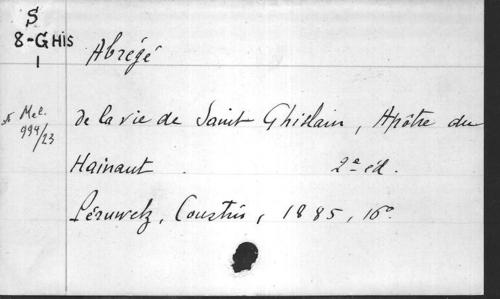 S
8-GHIS
1
Abrégé
Mel.
994/23
de la vie de Saint Ghislain, Apôtre du
Hainaut . 2e éd.
Péruwelz, Coustin, 1885, 16°.